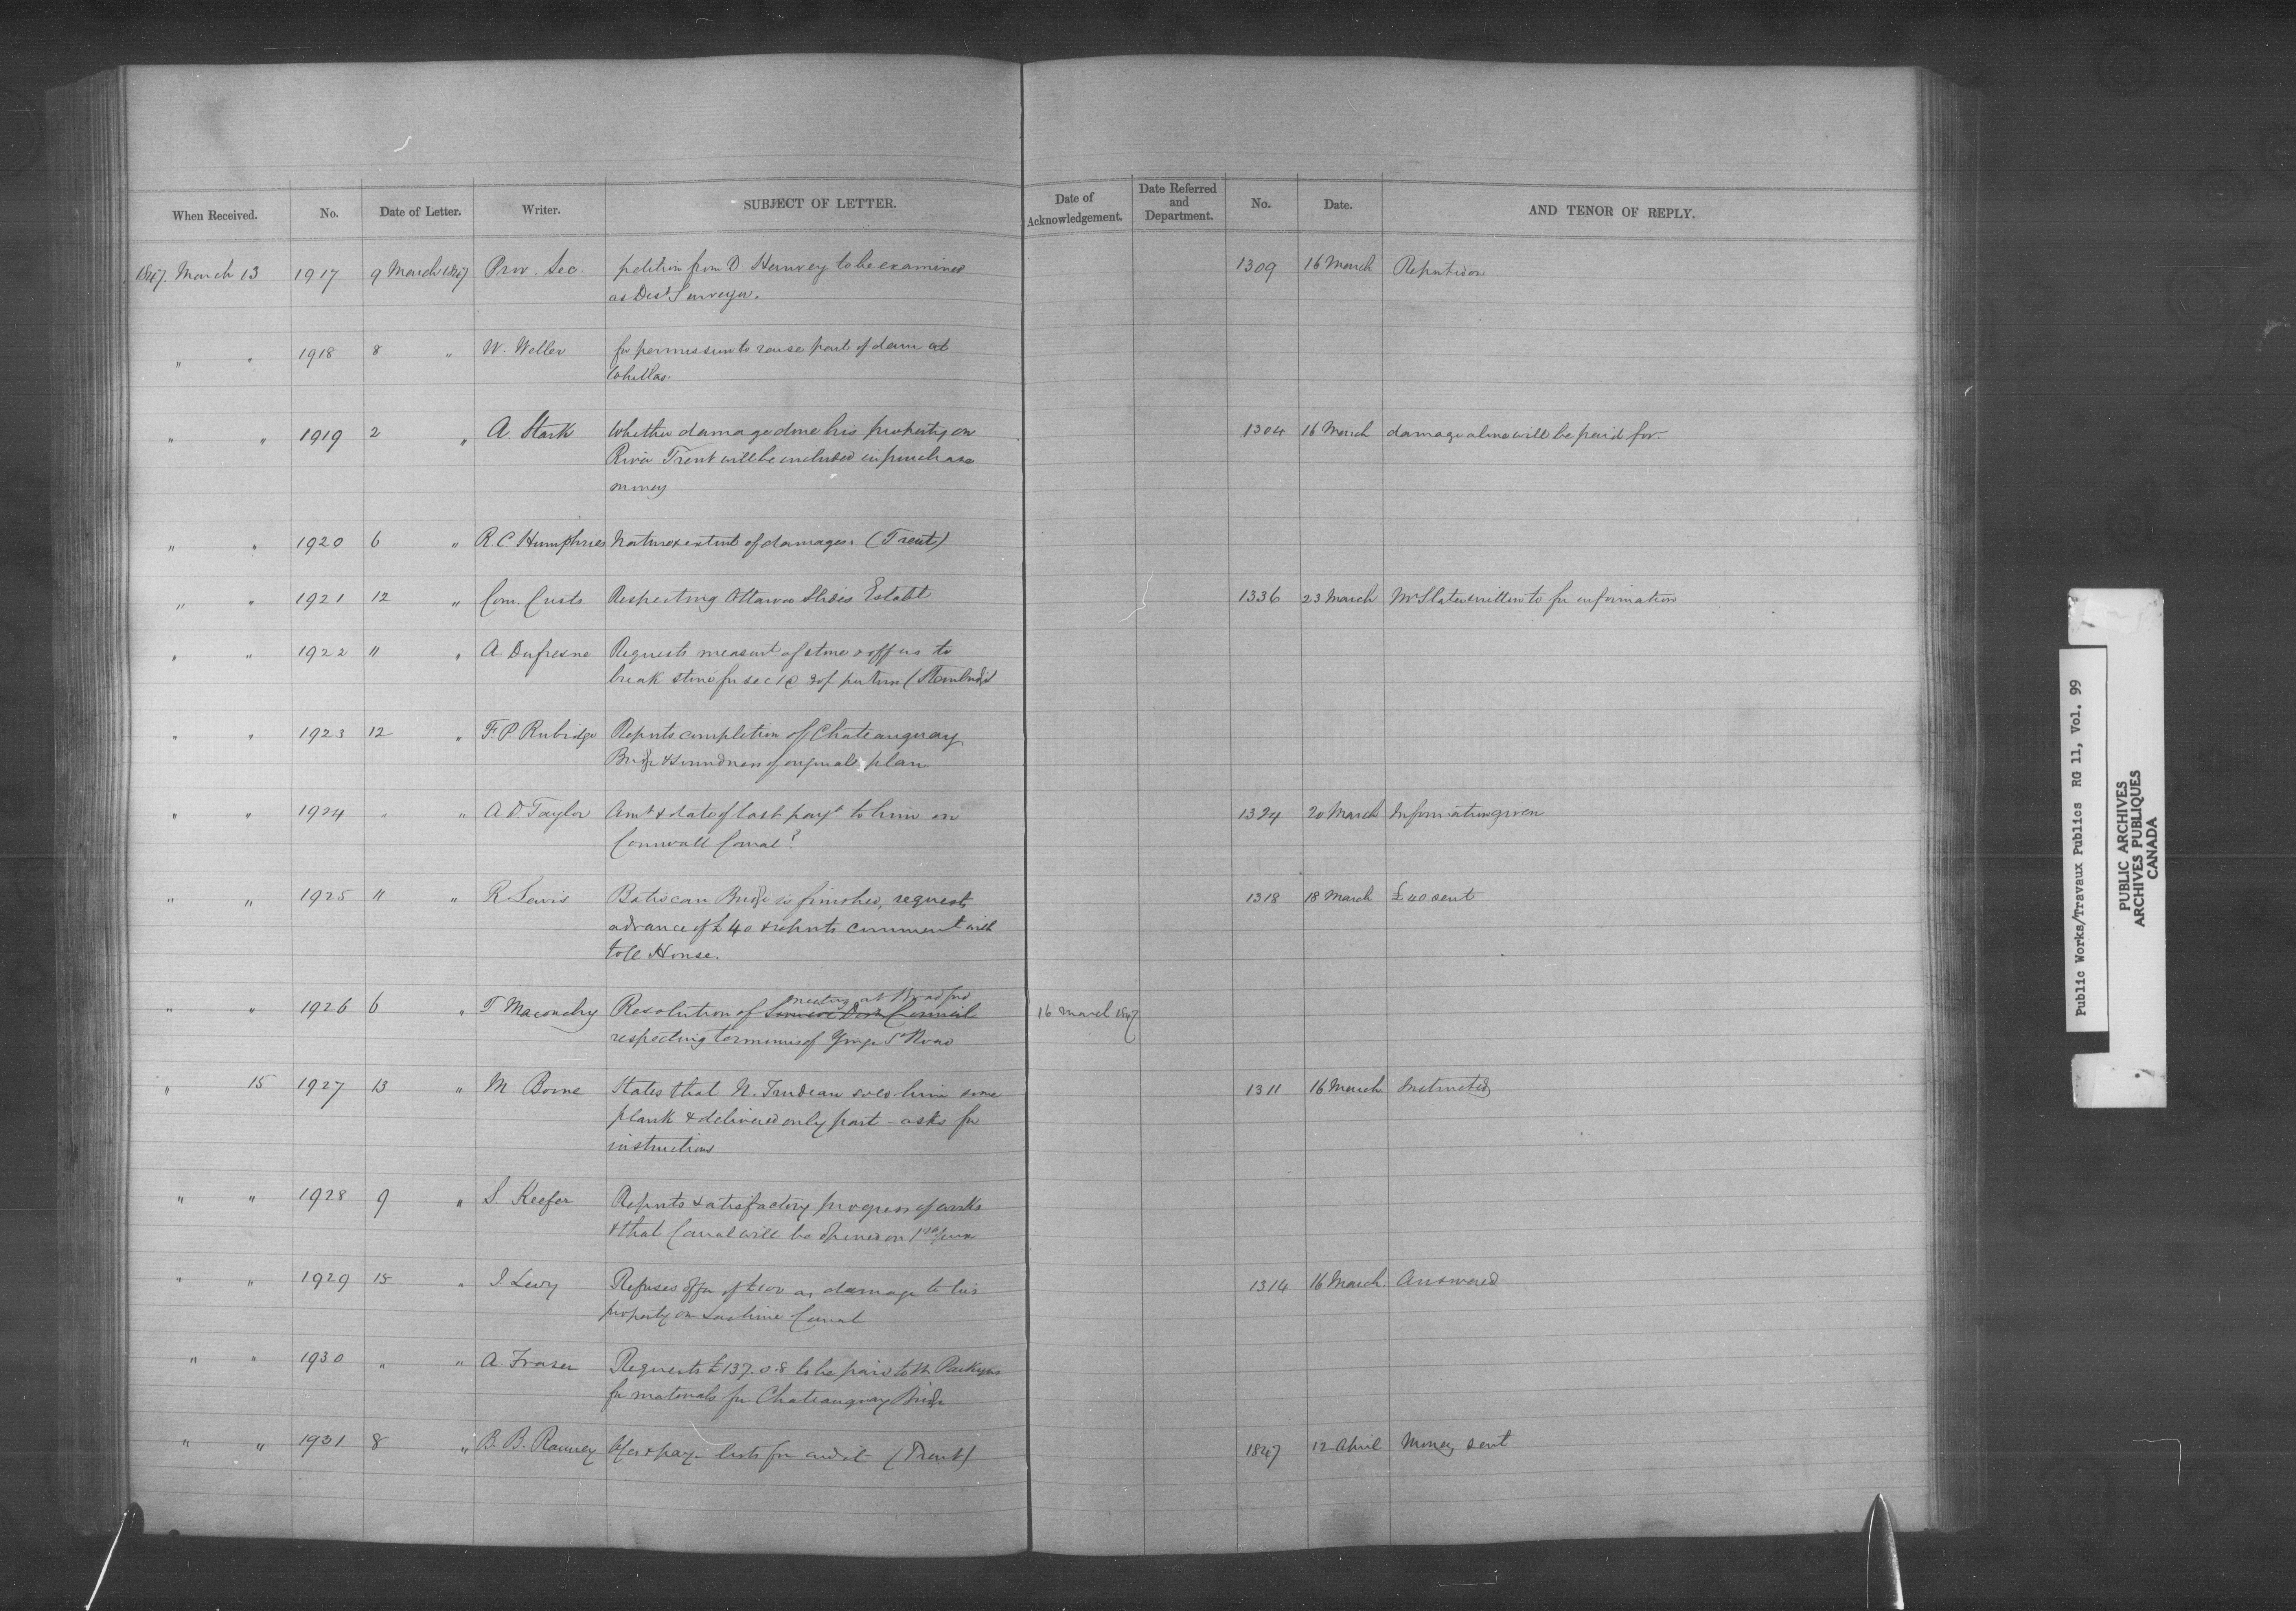 When Received. No. Date of Letter. Writer. SUBJECT OF LETTER. Date of Acknowledgement. Date Referred and Department. No. Date. AND TENOR OF REPLY.
1847. March 13 1917 9 March 1847 Prov. Sec. petition from D. Hanvey to be examined 1309 16 March Reported on
as Dist Surveyor.
" " 1918 8 " W. Weller for permission to raise part of dam at
Whitlas.
" " 1919 2 " A. Stark Whether damage done his property on 1304 16 March damage alone will be paid for.
River Trent will be included in purchase
money
" " 1920 6 " R C Humphries Nature & extent of damages (Trent)
" " 1921 12 " Com. Custs. Respecting Ottawa Slides Establt 1336 23 March Mr Slater written to for information
" " 1922 11 " A. Dufresne Requests measurt of stone & offers to
break stone for sec 1 @ per
" " 1923 12 " F. P. Rubidge Reports completion of Chateauguay
Bridge & soundness of original plan
" " 1924 " " A D Taylor Amt & date of last payt to him on 1324 20 March Information given
Cornwall Canal?
" " 1925 11 " R. Lewis Batiscan Bridge is finished, requests 1318 18 March £40 sent
advance of £40 & reports commencement with
toll House.
" " 1926 6 " T Maconchy Resolution of Simcoe Dist Council meeting at Bradford 16 March 1847
respecting terminus of Yonge St Road
" 15 1927 13 " M. Borne States that N. Trudeau sold him some 1311 16 March Instructed
plank & delivered only part - asks for
instructions
" " 1928 9 " S. Keefer Reports satisfactory progress of works
& that Canal will be opened on 1st
" " 1929 15 " I. Levy Refuses offer of £100 as damage to his 1314 16 March. Answered
property on Lachine Canal
" " 1930 " " A. Fraser Requests £137.0.8 to be paid to M. Parkyns
for materials for Chateauguay Bridge
" " 1931 8 " B. B. Ranney A/cs & pay lists for audit (Trent) 1847 12 April Money sent
Public Works/Travaux Publics RG 11, Vol. 99
PUBLIC ARCHIVES
ARCHIVES PUBLIQUES
CANADA